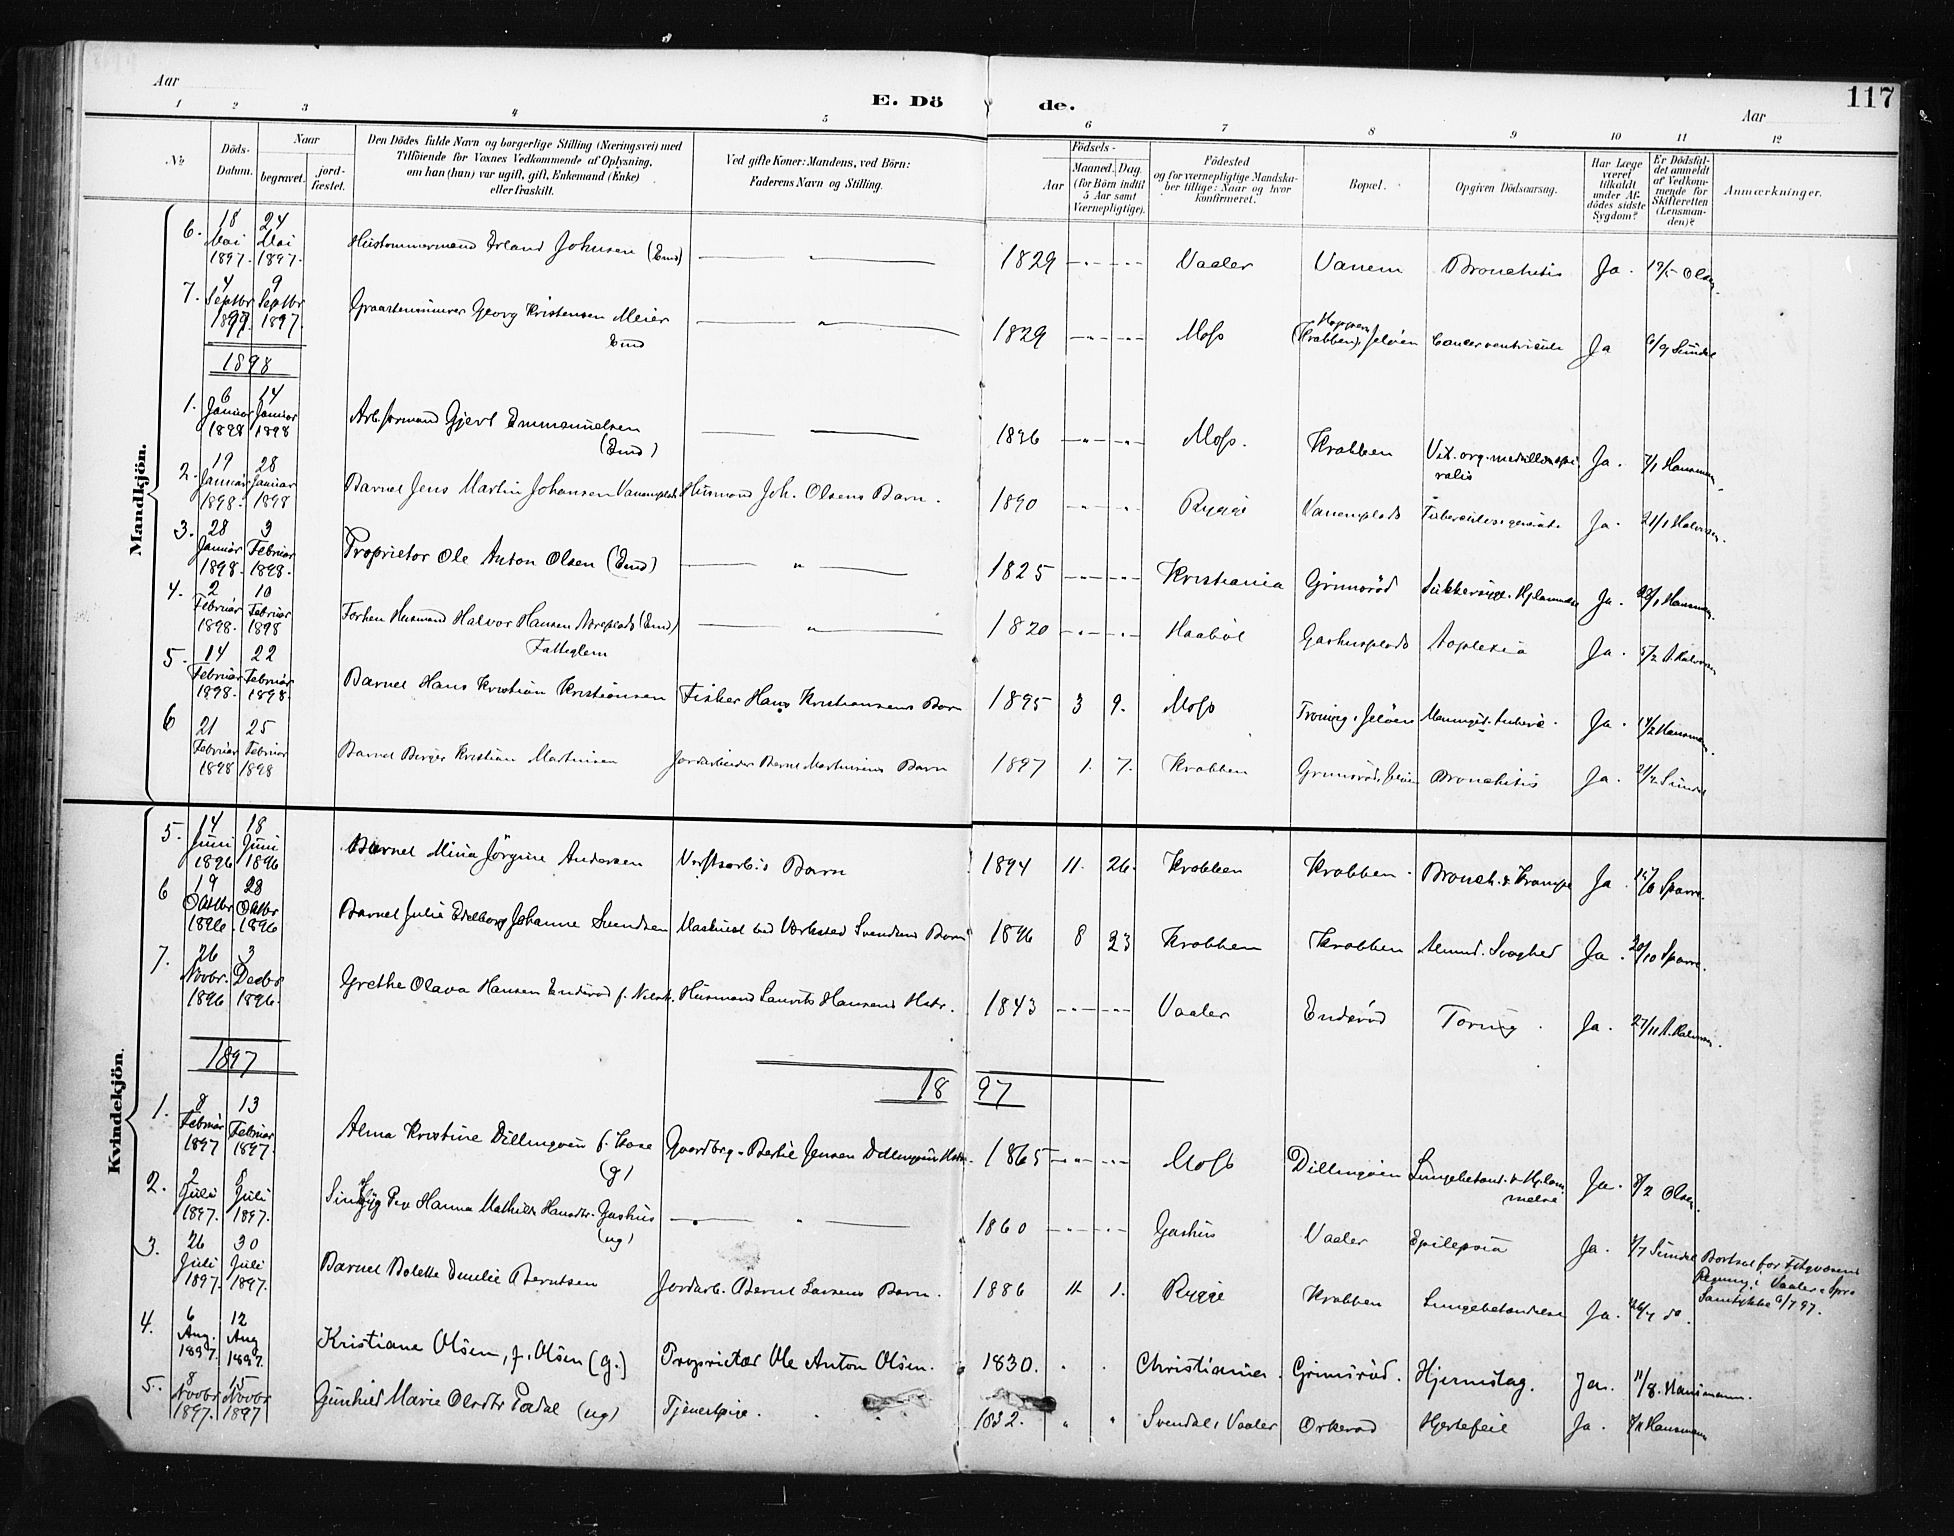 Aar
E. Dö de.
Aar
117
1 2 3 4 5 6 7 8 9 10 11 12
No
Döds-
Datum.
Naar
begravet.
jord-
fæstet.
Den Dödes fulde Navn og borgerlige Stilling (Næringsvei) med
Tilföiende for Voxnes Vedkommende af Oplysning,
om han (hun) var ugift, gift, Enkemand (Enke)
eller fraskilt.
Ved gifte Koner: Mandens, ved Börn:
Faderens Navn og Stilling.
Födsels-
Aar
Maaned. Dag.
(for Börn indtil
5 Aar samt
Værnepligtige).
Födested
og for værnepligtige Mandska-
ber tillige: Naar og hvor
konfirmeret.
Bopæl.
Opgiven Dödsaarsag.
Har Læge
været
tilkaldt
under Af-
dödes sidste
Sygdom?
Er Dödsfal-
det anmeldt
af Vedkom-
mende for
Skifteretten
(Lensman-
den)?
Anmærkninger.
Mandkjön.
6. 18 Mai 1897. 24 Mai 1897. Hustømmermand Erland Johnsen (Emd) 1829 Vaaler Vanem Bronchitis Ja. 19/5 Olsen.
7. 4 Septbr 1897. 9 Septbr 1897. Georg Kristensen Meier Emd 1829 Moss Hoppern (Krabben), Jeløen Cancer ventriculi Ja 6/9 Sundel
1898
1. 6 Januar 1898 14 Januar 1898 Arb.formand Gjert Emmanuelsen (Emd) 1826 Moss. Krabben Vit. org. medullæ spi-
ralis Ja. 7/1 Hansmann.
2. 19 Januar 1898. 28 Januar 1898 Barnet Jens Martin Johansen Vanemplads Husmand Joh. Olsens Barn. 1890 Rygge Vanemplads Ja. 21/1 Halvorsen.
3. 28 Januar 1898. 3 Februar 1898. Proprietær Ole Anton Olsen (Emd) 1825 Kristiania Grimsrød Sukkersyge. Hjlammelse Ja. 29/1 Hansmann.
4. 2 Februar 1898. 10 Februar 1898 Forhen Husmand Halvor Hansen Noreplads (Emd)
Fattiglem 1820 Haabøl Gashusplads Apoplexia Ja. 5/2 A. Halvorsen
5. 14 Februar 1898. 22 Februar 1898. Barnet Hans Kristian Kristiansen Fisker Hans Kristiansens Barn 1895 3 9. Moss Tronvig, Jeløen Meningit. tuberc. Ja. 14/2 Hansmann.
6 21 Februar 1898 25 Februar 1898 Barnet Birger Kristian Martinsen Jordarbeider Bernt Martinsens Barn 1897 1. 7. Krabben Grimsrød, Jeløen Bronchitis Ja. 21/2 Sundel
Kvindekjön.
5. 14 Juni 1896 18 Juni 1896 Barnet Mina Jørgine Andersen Værftsarb.s Barn 1894 11. 26. Krabben Krabben. Bronch. & Krampe Ja. 15/6 Sparre.
6 19 Oktbr 1896. 28 Oktbr 1896 Barnet Julie Edelborg Johanne Svendsen Maskinist ved Værksted Svendsens Barn 1896 8 23 Krabben Krabben Almind. Svaghed Ja. 20/10 Sparre.
7. 26 Novbr. 1896 3 Decbr 1896. Grethe Olava Hansen Enderød f. Nilsdt. Husmand Laurits Hansens Hstr. 1843 Vaaler Enderød Tæring. Ja. 27/11 A. Halvorsen.
1897
18 97
1. 8 Februar 1897 13 Februar 1897. Alma Kristine Dillingøen f. Hase (g) Gaardbrg. Bertil Jensen Dillingøens Hstr. 1865 Moss Dillingøen Lungebetænd. & Hj.lam-
melse Ja. 8/2 Olsen.
2. 2 Juli 1897. 6 Juli 1897. Sindssyg Pige Hanna Mathilde Hansdtr. Gashus (ug) 1860 Gashus Vaaler Epilepsia Ja. 4/7 Sundel Bortsat for Fatgvæsenets
Regning i Vaaler. Spr.s
Samtykke 6/7 97.
3. 26 Juli 1897. 30 Juli 1897. Barnet Bolette Emilie Berntsen Jordarb. Bernt Larsens Barn. 1886 11. 1. Rygge Krabben Lungebetændelse Ja. 26/7 do.
4. 6 Aug. 1897. 12 Aug 1897. Kristiane Olsen, f. Olsen (g.) Proprietær Ole Anton Olsen. 1830. Christiania. Grimsrød. Hjerneslag. Ja. 11/8. Hansmann.
5. 8 Novbr 1897. 15 Novbr 1897 Gunhild Marie Olsdtr Dadal (ug) Tjenestpige. 1832. Svendal, Vaaler Orkerød Hjertefeil Ja. 9/11 Hansmann